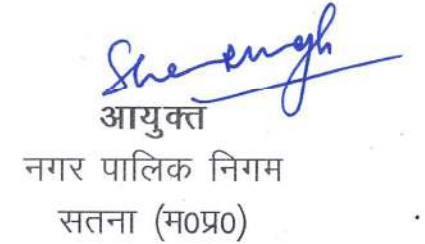 आयुक्त
नगर पालिक निगम
सतना (म0प्र0)